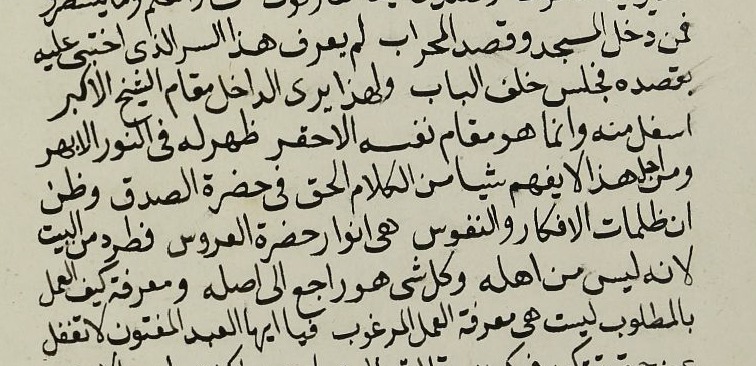 فمن دخل المسجد وقصد المحراب لم يعرف هذا السر الذى اختبى عليه
بقصده فجلس خلف الباب ولهذا يرى الداخل مقام الشيخ الاكبر
اسفل منه وانما هو مقام نفسه الاحقر ظهر له فى النور الابهر
ومن اجل هذا لا يفهم شيا من الكلام الحق فى حضرة الصدق وظن
ان ظلمات الافكار والنفوس هى انوار حضرة العروس فطرد من البيت
لانه ليس من اهله وكل شى هو راجع الى اصله ومعرفة كيف العمل
بالمطلوب ليست هى معرفة العمل المرغوب فيا ايها العبد المفتون لا تغفل